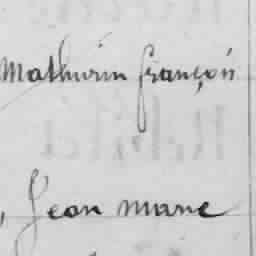 Mathurin françois
, Jean marie